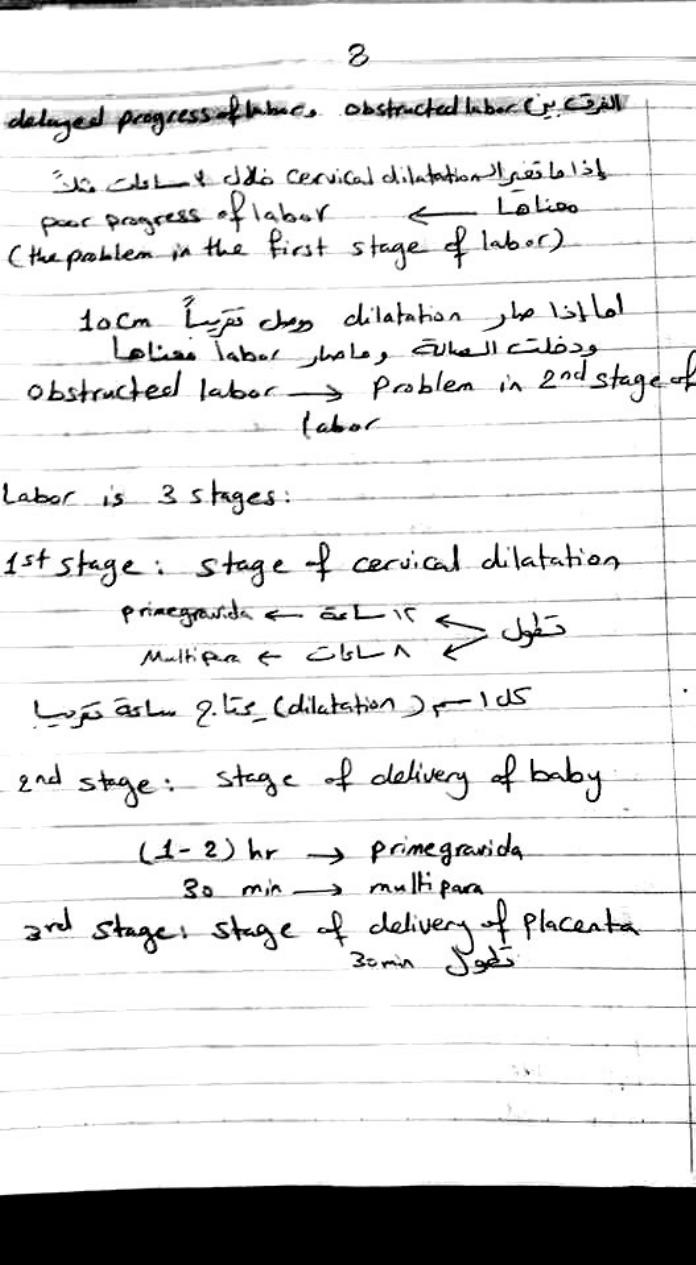 8
الفرق بين obstructed labor و delayed progress of labor
إذا ما تغير الـ cervical dilatation خلال ساعات مثلاً
معناها ← poor progress of labor
(the problem in the first stage of labor)
اما إذا صار dilatation ووصل تقريباً 10cm
ودخلت الصالة وماصار labor معناها
obstructed labor → Problem in 2nd stage of
labor
Labor is 3 stages:
1st stage: stage of cervical dilatation
تطول ← ١٢ ساعة ← primegravida
← ٨ ساعات ← Multipara
كل ١ سم (dilatation) يحتاج ساعة تقريبا
2nd stage: stage of delivery of baby
(1-2) hr → primegravida
30 min → multipara
3rd stage: stage of delivery of placenta
تطول 30min